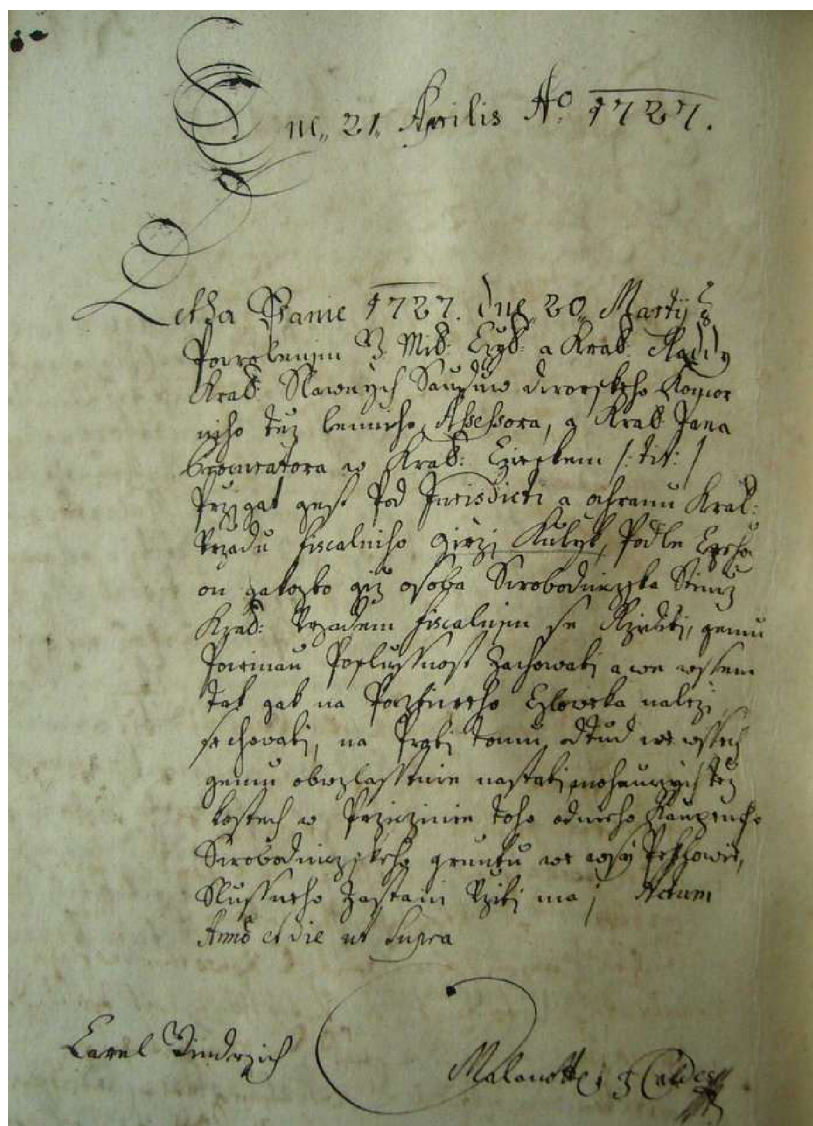 Dne 21 Aprilis Ao 1727.
Letha Panie 1727. dne 20 Martij
Powolenjm J. Mti. Czys: a Kral: Raddy
Kral: Slawnych Saudůw dworskeho Komor
niho tez lenniho Assessora, a Kral: Pana
Procuratora w Kral: Czieskem /: tit: /
Przigat gest Pod Jurisdicti a ochranu Kral:
Urzadu fiscalniho Girzi Kulyk, Podle Czeho
on gakozto giz osoba Swobodniczka
Kral: Urzadem fiscalnjm se Rziditi, gemu
Powinau Poslussnost Zachowati a we wssem
tak gak na Poctiweho Czloweka nalezi
se chowati, na Proti tomu odtud we wssech
gemu obwzlasstnie nastati mohauczych tez
kostech w Prziczinie toho odneho Kaupeneho
Swobodniczkeho gruntu we wsy
Slussneho Zastani Uziti ma; Actum
Anno et die ut Supra
Carel Jindrzich
Malanotte